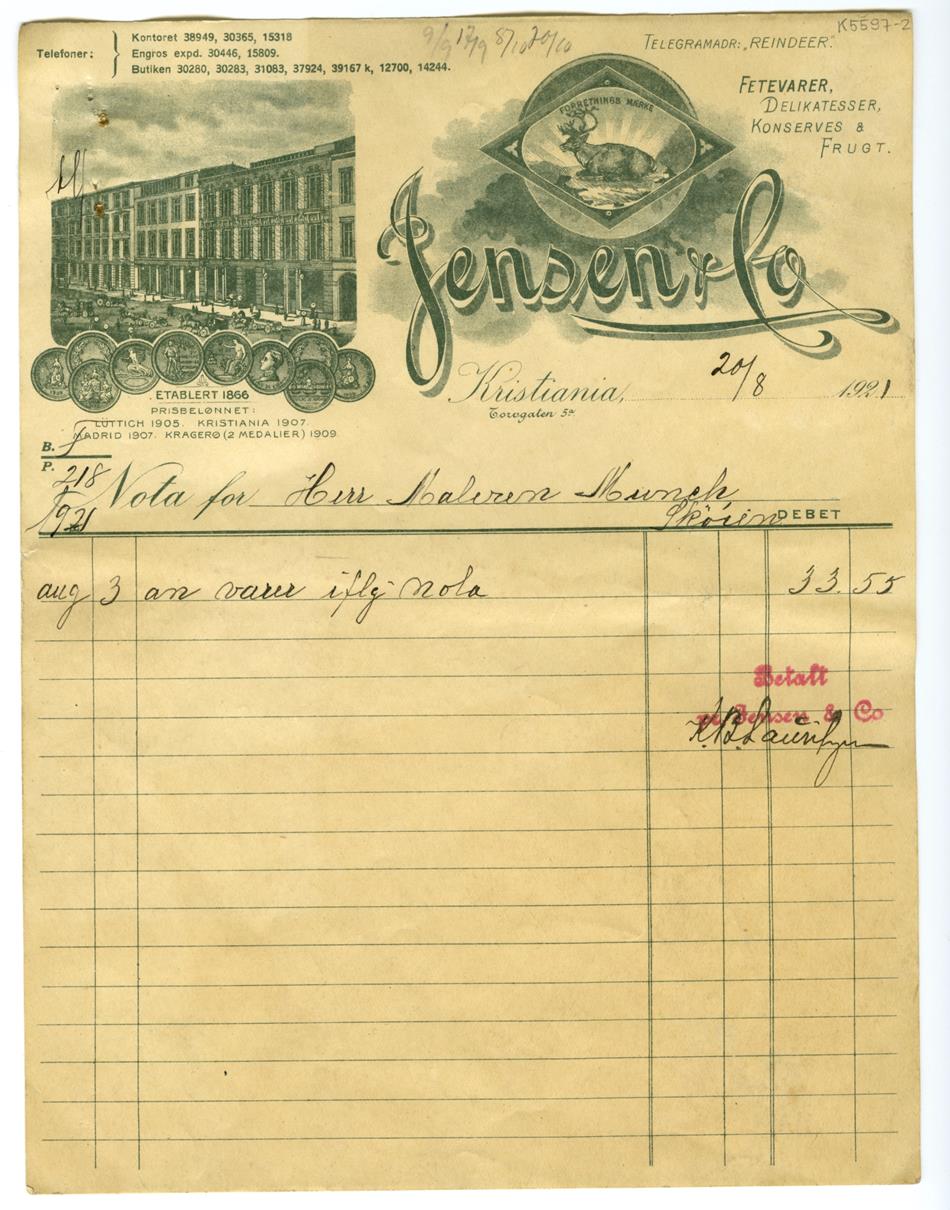 K5597-2
Telefoner:
Kontoret 38949, 30365, 15318
Engros expd. 30446, 15809.
Butiken 30280, 30283, 31083, 37924, 39167 k, 12700, 14244.
9/9 17/9 8/10 20/10
TELEGRAMADR: „REINDEER".
FETEVARER,
DELIKATESSER,
KONSERVES &
FRUGT.
FORRETNINGS MÆRKE
Jensen & Co
ETABLERT 1866
PRISBELØNNET:
LÜTTICH 1905. KRISTIANIA 1907.
MADRID 1907. KRAGERØ (2 MEDALIER) 1909.
Kristiania, 20/8 1921
Torvgaten 5a
B.
P. 218
1921
Nota for Herr Maleren Munch,
Skøien
DEBET
aug 3 an varer iflg Nota 33.55
Betalt
pr Jensen & Co